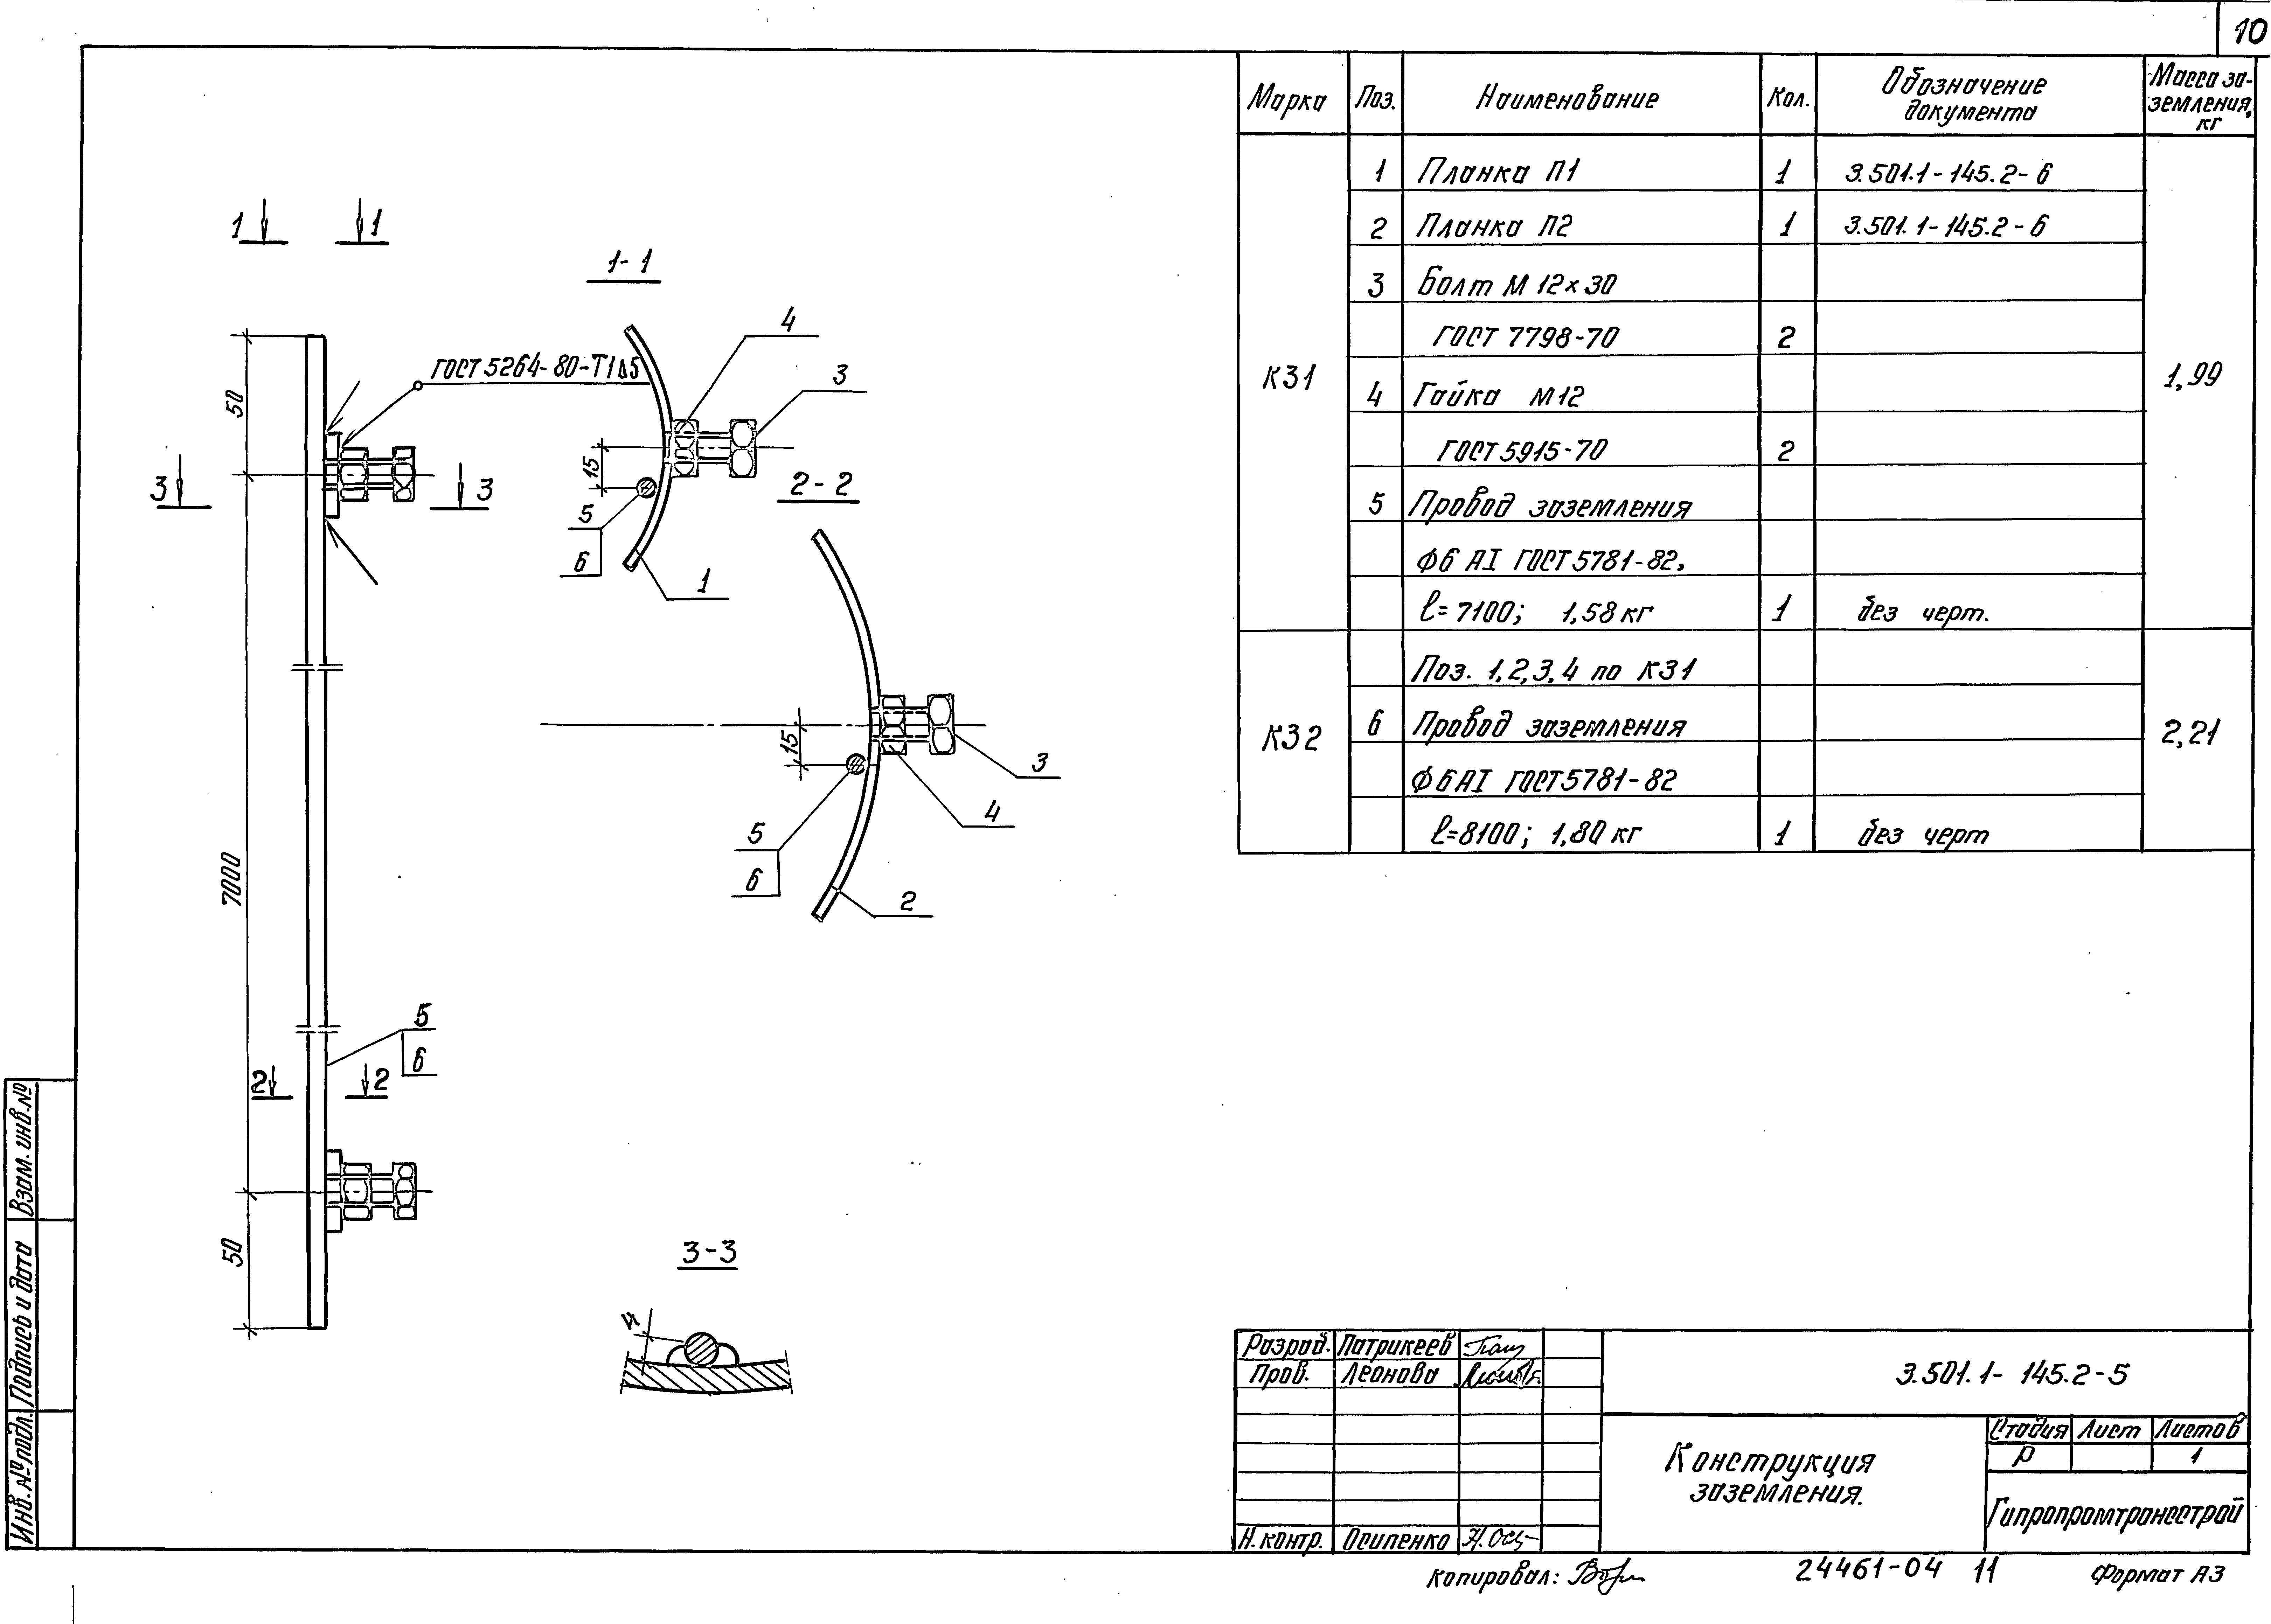 10
Марка Поз. Наименование Кол. Обозначение документа Масса за-
земления,
кг
КЗ1
1 Планка П1 1 3.501.1-145.2-6
2 Планка П2 1 3.501.1-145.2-6
3 Болт М 12×30
ГОСТ 7798-70 2
4 Гайка М12
ГОСТ 5915-70 2
5 Провод заземления
Ф6 АI ГОСТ 5781-82,
ℓ=7100; 1,58 кг 1 без черт.
1,99
КЗ2
Поз. 1,2,3,4 по КЗ1
6 Провод заземления
Ф6АI ГОСТ 5781-82
ℓ=8100; 1,80 кг 1 без черт
2,21
1 1
1-1
50
ГОСТ 5264-80-Т1Δ5
4
3
15
5
6
1
3 3
2-2
15
3
4
5
6
2
7000
5
6
2 2
50
3-3
4
Взам. инв. №
Подпись и дата
Инв. № подл.
Разраб. Патрикеев
Пров. Леонова
Н. контр. Осипенко
3.501.1-145.2-5
Конструкция
заземления.
Стадия Лист Листов
Р 1
Гипропромтрансстрой
Копировал:
24461-04 11
Формат А3